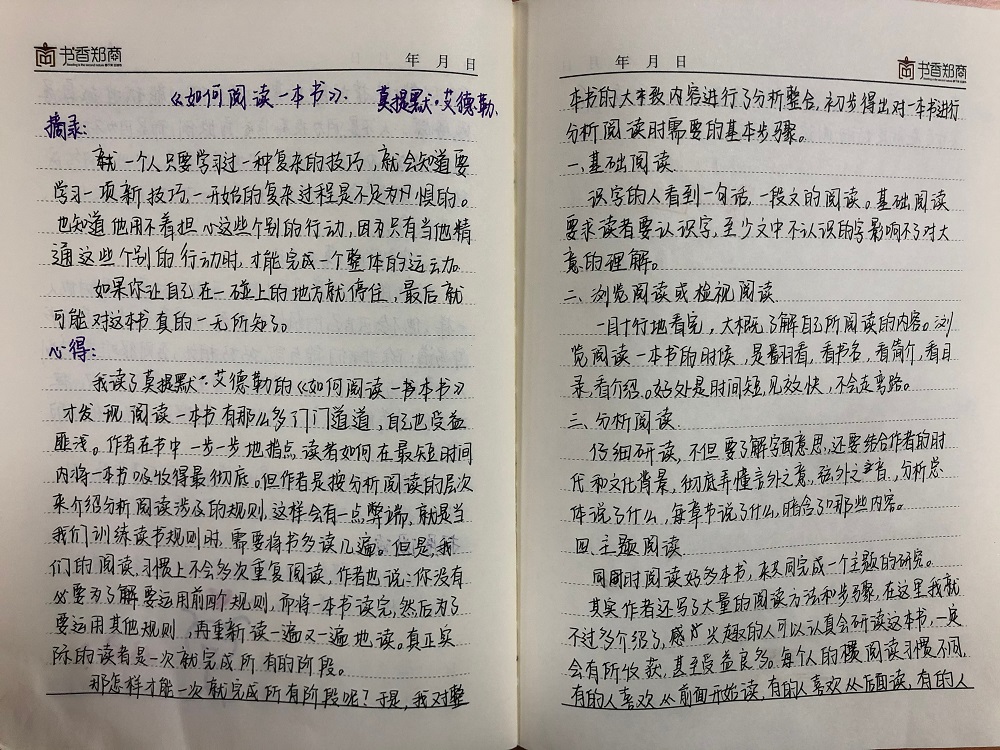 书香郑商
年 月 日
《如何阅读一本书》. 莫提默·艾德勒.
摘录:
就一个人只要学习过一种复杂的技巧,就会知道要
学习一项新技巧,一开始的复杂过程是不足为惧的。
也知道他用不着担心这些个别的行动,因为只有当他精
通这些个别的行动时,才能完成一个整体的运动。
如果你让自己在一碰上的地方就停住,最后就
可能对这本书真的一无所知了。
心得:
我读了莫提默·艾德勒的《如何阅读一本书》
才发现阅读一本书有那么多门门道道,自己也受益
匪浅。作者在书中一步一步地指点读者如何在最短时间
内将一本书吸收得最彻底。但作者是按分析阅读的层次
来介绍分析阅读涉及的规则,这样会有一点弊端,就是当
我们训练读书规则时,需要将书多读几遍。但是,我
们的阅读习惯上不会多次重复阅读,作者也说:你没有
必要为了解要运用前四个规则,而将一本书读完,然后为了
要运用其他规则,再重新读一遍又一遍地读。真正实
际的读者是一次就完成所有的阶段。
那怎样才能一次就完成所有阶段呢?于是,我对整
年 月 日
书香郑商
本书的大致内容进行了分析整合,初步得出对一本书进行
分析阅读时需要的基本步骤。
一、基础阅读
识字的人看到一句话,一段文的阅读。基础阅读
要求读者要认识字,至少文中不认识的字影响不了对大
意的理解。
二、浏览阅读或检视阅读
一目十行地看完,大概了解自己所阅读的内容。浏
览阅读一本书的时候,是看书名,看简介,看目
录,看介绍。好处是时间短,见效快,不会走弯路。
三、分析阅读
仔细研读,不但要了解字面意思,还要结合作者的时
代和文化背景,彻底弄懂言外之意,弦外之音,分析总
体说了什么,每章节说了什么,暗含了那些内容。
四、主题阅读
同时阅读好多本书,来共同完成一个主题的研究。
其实作者还写了大量的阅读方法和步骤,在这里我就
不过多介绍了,感兴趣的人可以认真会研读这本书,一定
会有所收获,甚至受益良多。每个人的阅读习惯不同,
有的人喜欢从前面开始读,有的人喜欢从后面读,有的人